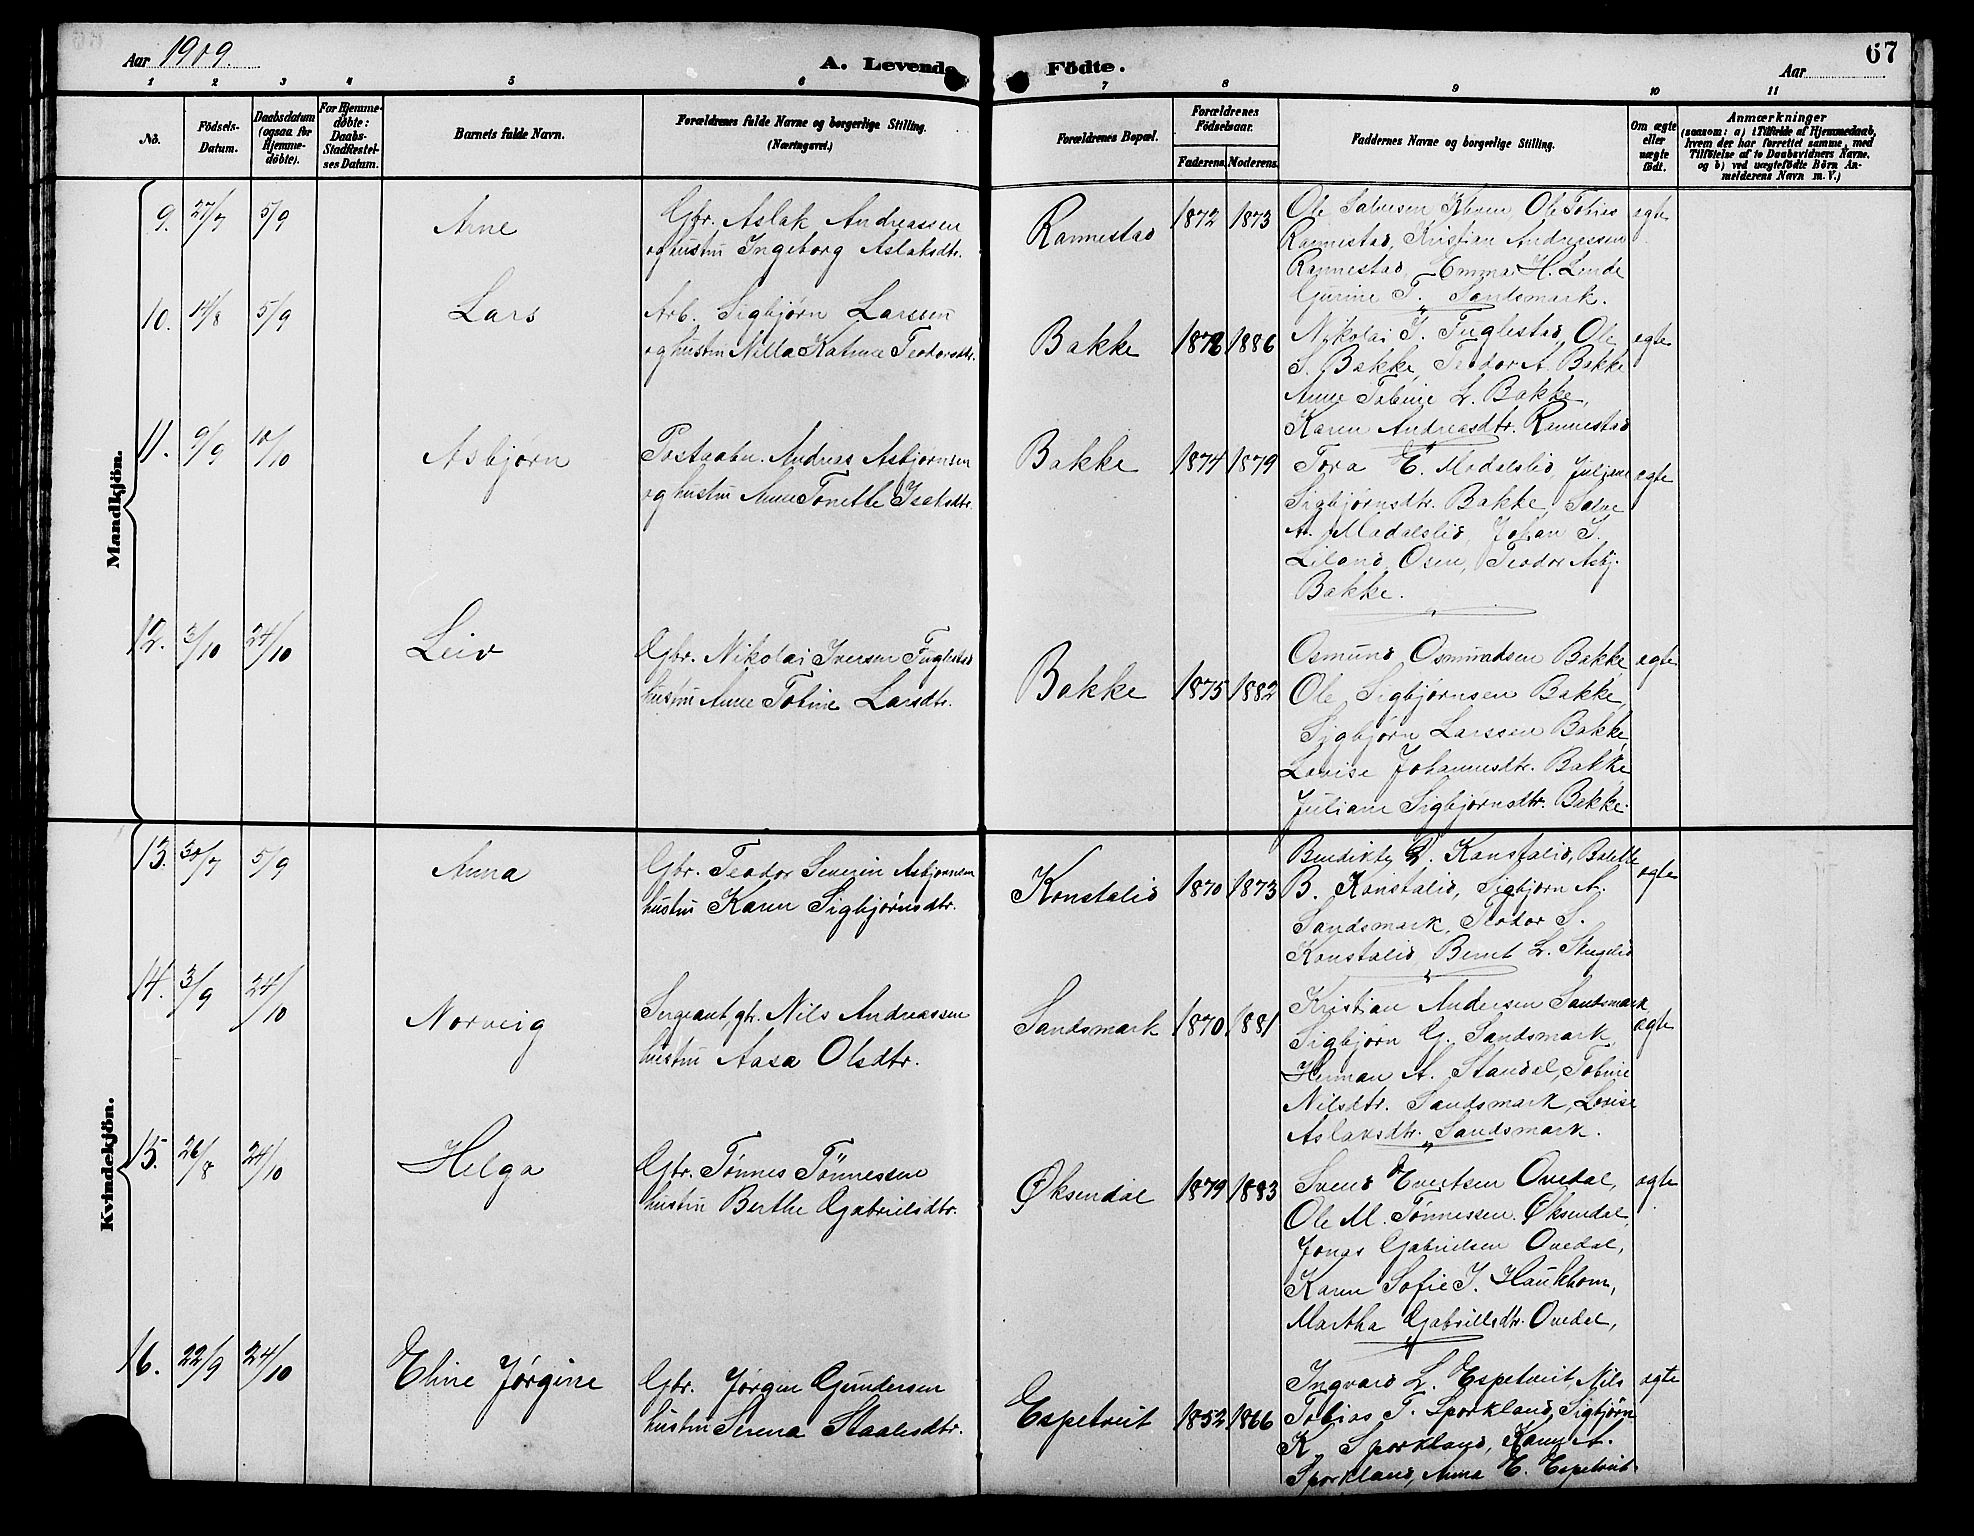 Aar 1909.
A. Levende Födte.
67
Aar
1 2 3 4 5 6 7 8 9 10 11
No.
Födsels-Datum.
Daabsdatum (ogsaa for Hjemme-döbte).
For Hjemme-döbte: Daabs-Stadfæstel-ses Datum.
Barnets fulde Navn.
Forældrenes fulde Navne og borgerlige Stilling.
(Næringsvei.)
Forældrenes Bopæl.
Forældrenes Födselsaar.
Faderens. Moderens.
Faddernes Navne og borgerlige Stilling.
Om ægte eller uægte födt.
Anmærkninger
(saasom: a) i Tilfælde af Hjemmedaab,
hvem der har forrettet samme, med
Tilföielse af to Daabsvidners Navne,
og b) ved uægtefödte Börn An-
melderens Navn m. V.)
Mandkjön.
9. 27/7 5/9 Arne
Gbr. Aslak Andreassen
og hustru Ingeborg Aslaksdtr.
Rannestad 1872 1873
Ole Salvesen Kloven Ole Tobias
Rannestad, Kristian Andreassen
Rannestad, Emma H. Linde
Gurine T. Sandsmark.
ægte
10. 14/8 5/9 Lars
Arb. Sigbjørn Larssen
og hustru Nilla Katrine Teodorsdtr.
Bakke 1886
Nikolai I. Fuglestad, Ole
S. Bakke, Teodor A. Bakke
Anne Tobine L. Bakke,
Karen Andreasdtr. Rannestad
ægte
11. 9/9 10/10 Asbjørn
Postaabn. Andreas Asbjørnsen
og hustru Anne Tonette Isaksdtr.
Bakke 1874 1879
Tora E. Modalslid, Juliane
Sigbjørnsdtr. Bakke, Salve
A. Modalslid, Johan I.
Liland, Osen, Teodor Asbj.
Bakke.
ægte
12. 3/10 24/10 Leiv
Gbr. Nikolai Iversen Fuglestad
hustru Anne Tobine Larsdtr.
Bakke 1875 1882
Osmund Osmundsen Bakke,
Ole Sigbjørnsen Bakke,
Sigbjørn Larssen Bakke,
Lovise Johannesdtr. Bakke
Juliane Sigbjørnsdtr. Bakke.
ægte
Kvindekjön.
13. 30/7 5/9 Anna
Gbr. Teodor Severin Asbjørnsen
hustru Karen Sigbjørnsdtr.
Konstalid 1870 1873
Benedikte Konstalid, Bolette
B. Konstalid, Sigbjørn A.
Sandsmark, Teodor S.
Konstalid, Bernt L.
ægte
14. 3/9 24/10 Norveig
Sergeant, gbr. Nils Andreassen
hustru Aasa Olsdtr.
Sandsmark 1870 1881
Kristian Andersen Sandsmark
Sigbjørn G. Sandsmark,
Herman A. Standal, Tobine
Nilsdtr. Sandsmark, Lovise
Aslaksdtr. Sandsmark.
ægte
15. 26/8 24/10 Helga
Gbr. Tønnes Tönnessen
hustru Berthe Gabrielsdtr.
Øksendal 1879 1883
Svend Evertsen Ovedal,
Ole M. Tönnessen Øksendal,
Jonas Gabrielsen Ovedal,
Karen Sofie I. Haukhom,
Martha Gabrielsdtr. Ovedal,
ægte
16. 22/9 24/10 Eline Jørgine
Gbr. Jörgen Gundersen
hustru Serena Staalesdtr.
Espetveit 1852 1866
Ingvard L. Espetveit, Nils
Tobias T. Sporkland, Sigbjørn
K. Sporkland, Karen A.
Sporkland, Anna E. Espetveit
ægte